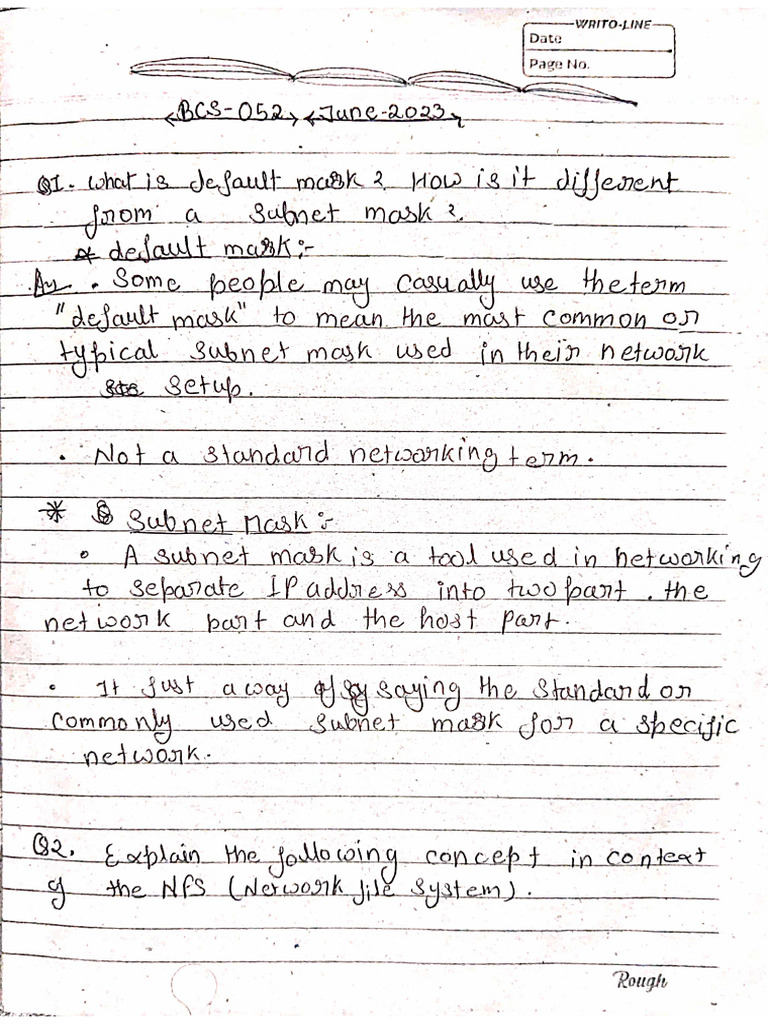 WRITO-LINE
Date
Page No.
BCS-052 June-2023
Q1. What is default mask? How is it different
from a subnet mask?
* default mask:-
Ans. Some people may casually use the term
"default mask" to mean the most common or
typical subnet mask used in their network
setup.
• Not a standard networking term.
* Subnet Mask:-
• A subnet mask is a tool used in networking
to separate IP address into two part. the
network part and the host part.
• It Just a way of saying the standard or
commonly used subnet mask for a specific
network.
Q2. Explain the following concept in context
of the NFS (Network file system).
Rough